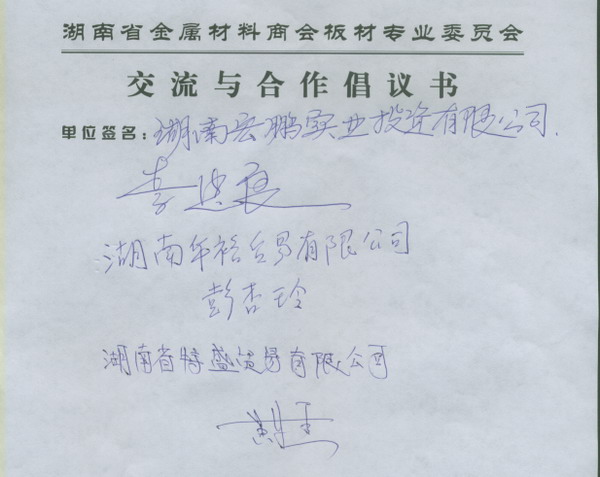 湖南省金属材料商会板材专业委员会
交流与合作倡议书
单位签名：湖南宏鹏实业投资有限公司.
李
湖南华裕贸易有限公司
彭杏玲
湖南省特盛贸易有限公司